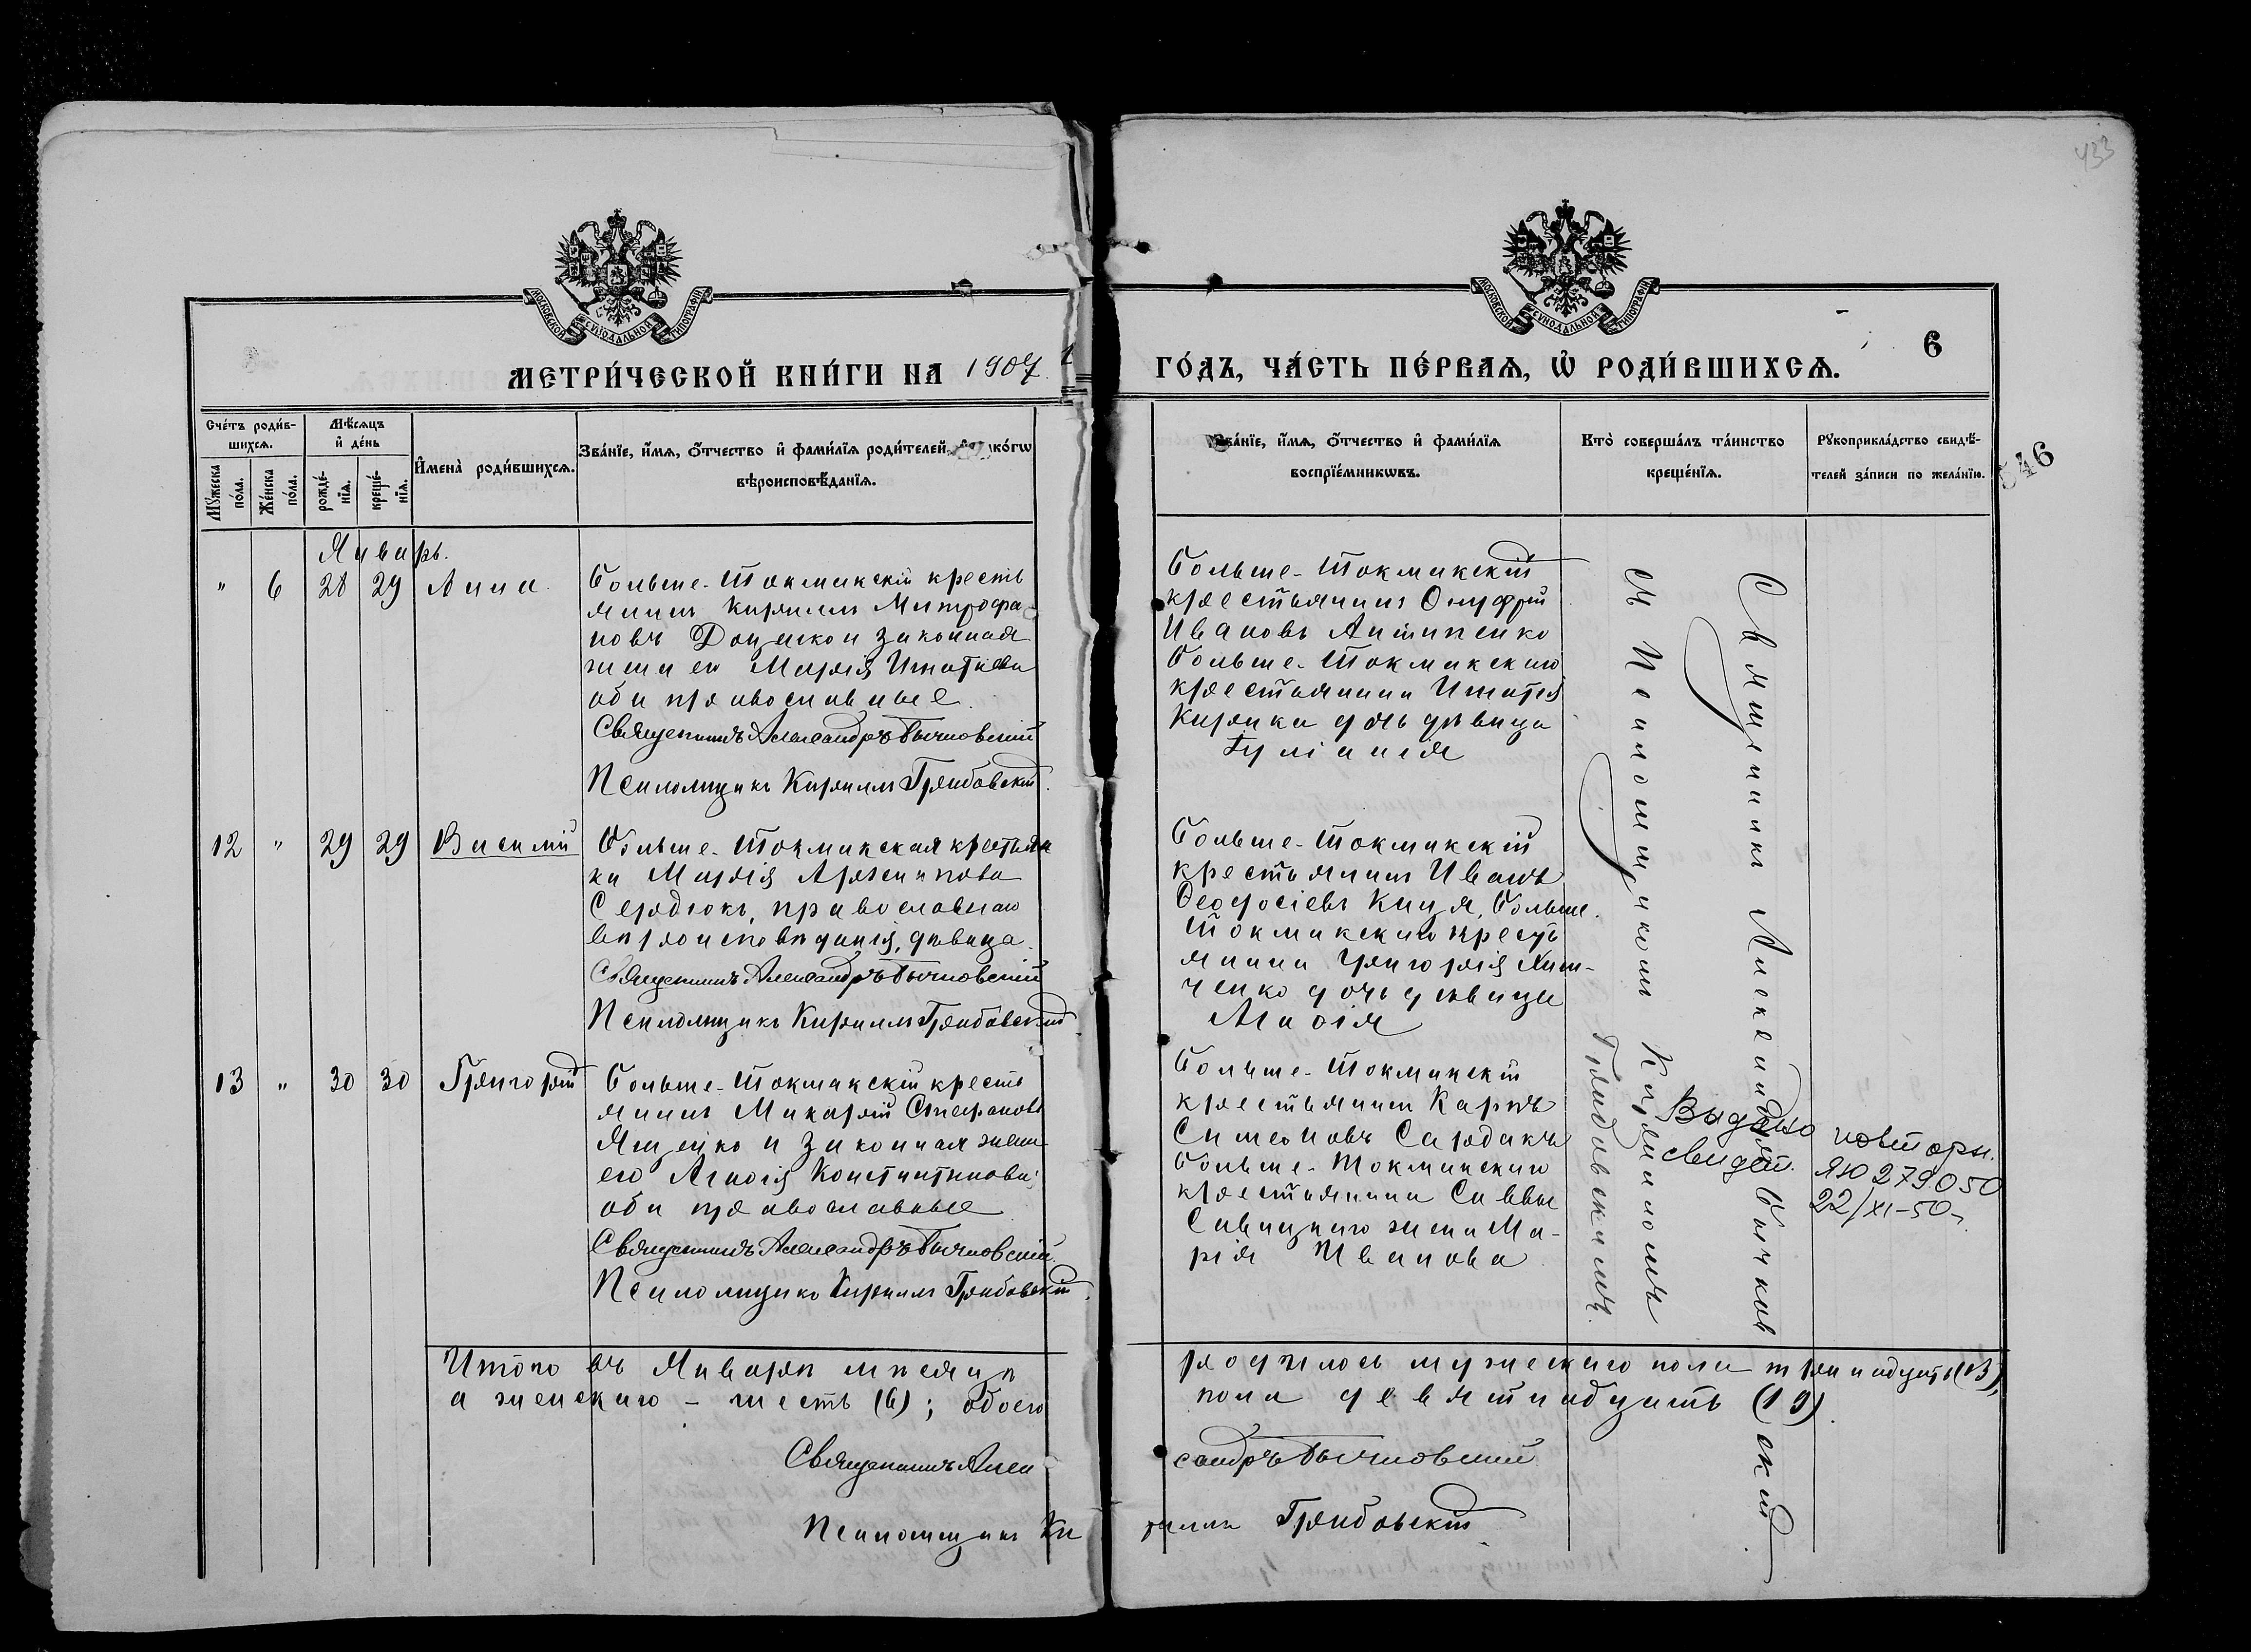 433
МОСКОВСКОЙ СѴНОДАЛЬНОЙ ТИПОГРАФІИ
МОСКОВСКОЙ СѴНОДАЛЬНОЙ ТИПОГРАФІИ
МЕТРИ́ЧЕСКОЙ КНИ́ГИ НА 1907
ГО́ДЪ, ЧА́СТЬ ПЕ́РВАѦ, Ѽ РОДИ́ВШИХСѦ.
6
546
Сче́тъ роди́в-
шихсѧ.
Мꙋ́жеска
по́ла.
Же́нска
по́ла.
Мѣ́сѧцъ
и҆ де́нь
рожде́-
нїѧ.
креще́-
нїѧ.
И҆мена̀ роди́вшихсѧ.
Зва́нїе, и҆́мѧ, ѻ҆́тчество и҆ фами́лїѧ роди́телей, и҆ како́гѡ
вѣроисповѣ́данїѧ.
Зва́нїе, и҆́мѧ, ѻ҆́тчество и҆ фами́лїѧ
воспрїе́мникѡвъ.
Кто̀ соверша́лъ та́инство
креще́нїѧ.
Рꙋкоприкла́дство свидѣ́-
телей за́писи по жела́нїю.
Январь.
" 6 28 29 Анна.
Больше-Токмакскій кресть
янинъ Кириллъ Митрофа-
новъ Доценко и законная
жена его Марія Игнатіева
оба православные.
Священникъ Александръ Бычковскій
Псаломщикъ Кириллъ Грибовскій.
Больше-Токмакскій
крестьянинъ Онуфрій
Ивановъ Антипенко
Больше-Токмакскаго
крестьянина Игнатія
Кирика дочь дѣвица
Іуліанія
12 " 29 29 Василій
Больше-Токмакская крестьян
ка Марія Архиппова
Сердюкъ, православнаго
вѣроисповѣданія, дѣвица.
Священникъ Александръ Бычковскій
Псаломщикъ Кириллъ Грибовскій
Больше-Токмакскій
крестьянинъ Иванъ
Феодосіевъ Каця, Больше-
Токмакскаго кресть
янина Григорія
ченко дочь дѣвица
Агаѳія
13 " 30 30 Григорій
Больше-Токмакскій кресть
янинъ Макарій Стефановъ
Яценко и законная жена
его Агаѳія Константинова:
оба православные
Священникъ Александръ Бычковскій
Псаломщикъ Кириллъ Грибовскій.
Больше-Токмакскій
крестьянинъ Карпъ
Симеоновъ Сардакъ
Больше-Токмакскаго
крестьянина Саввы
Савицкаго жена Ма-
рія Иванова
Священникъ Александръ Бычковскій
съ Псаломщикомъ Кирилломъ
Грибовскимъ.
Выдано повторн.
свидет. ЯЮ 279050
22/XI-50
Итого въ Январѣ мѣсяцѣ родилось мужескаго пола тринадцать (13),
а женскаго - шесть (6); обоего пола девятнадцать (19).
Священникъ Александръ Бычковскій
Псаломщикъ Кириллъ Грибовскій